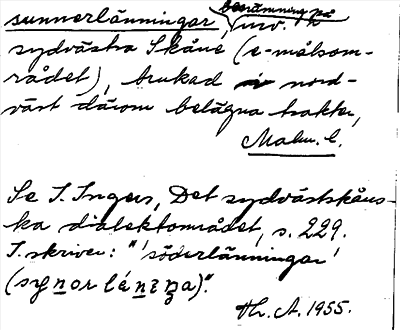 benämning på
sunnerlänningar, inv. i
sydvästra Skåne (e-målsom-
rådet), brukad i nord-
väst därom belägna trakter,
Malm. l.
Se I. Ingers, Det sydvästskåns-
ka dialektområdet, s. 229.
I. skriver: "'söderlänningar'
(synorlénīŋa)".
Hr. A. 1955.